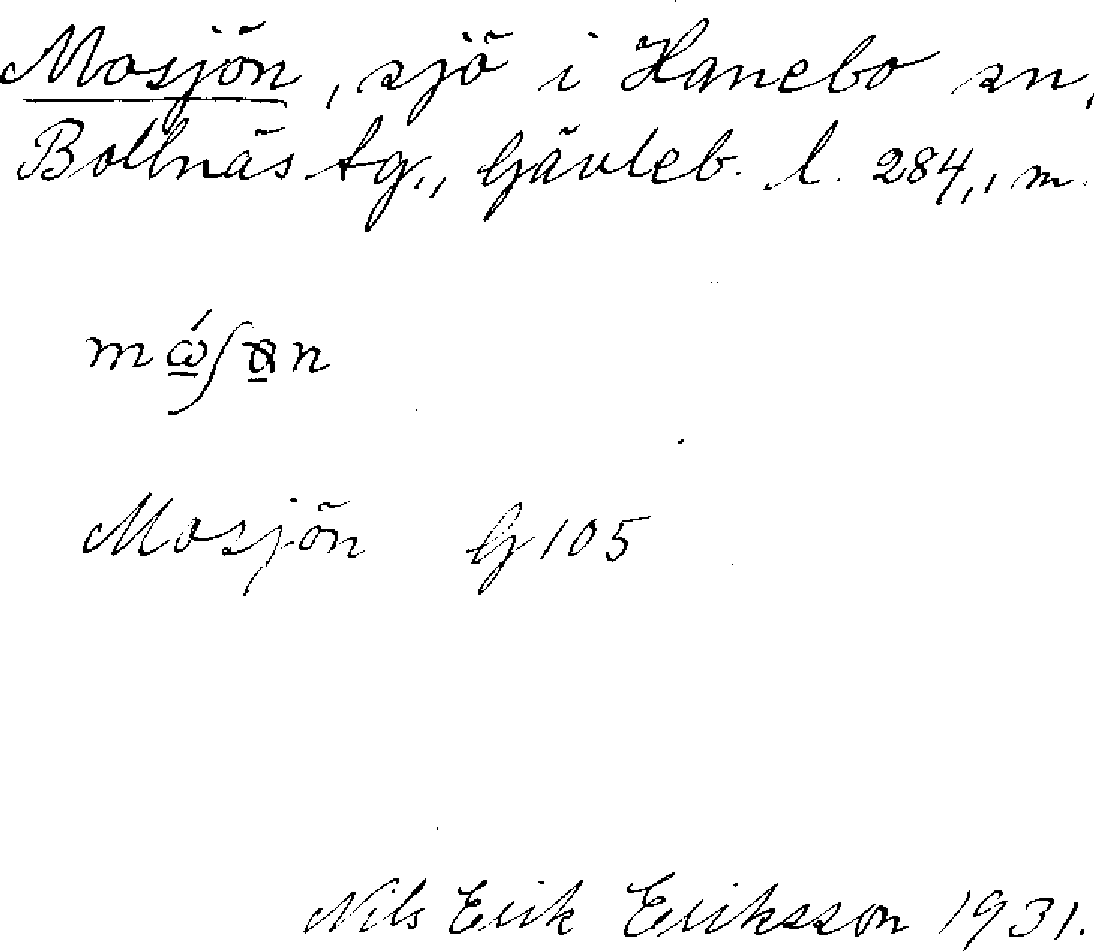 Mosjön, sjö i Hanebo sn,
Bollnäs tg., Gävleb. l. 284,1 m.
Mosjön G 105
Nils Erik Eriksson 1931.